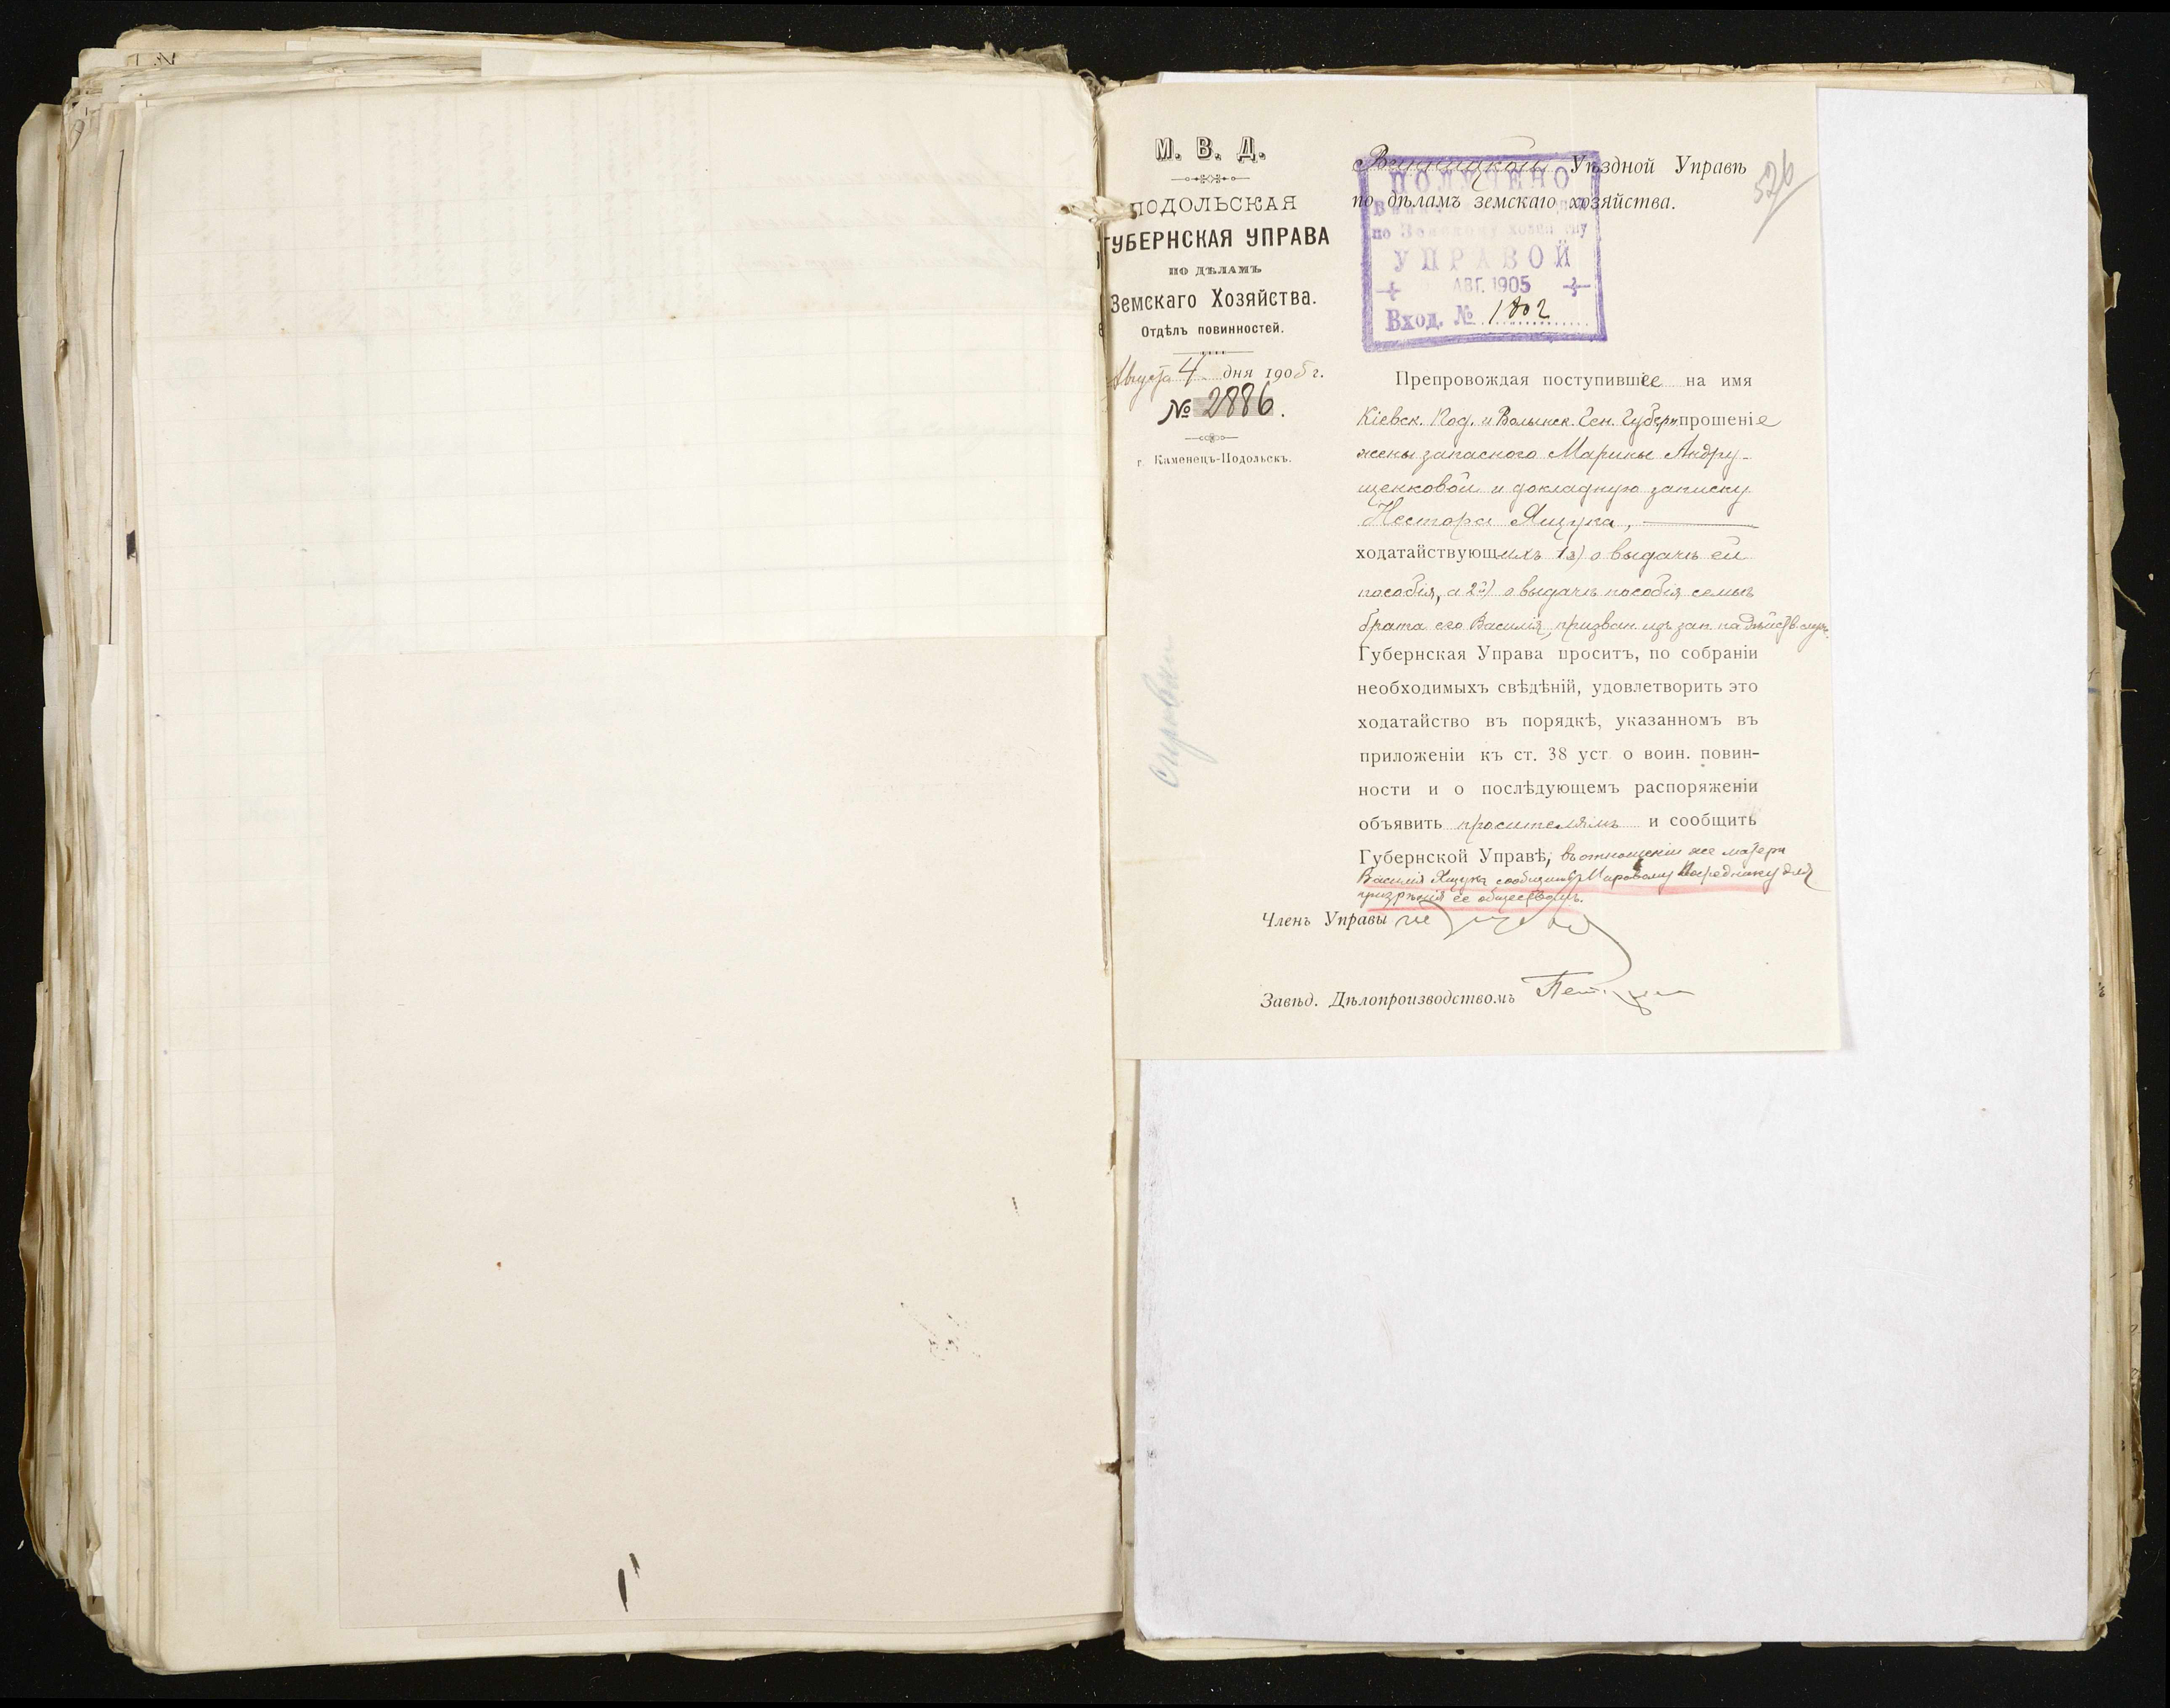 М. В. Д.
ПОДОЛЬСКАЯ
ГУБЕРНСКАЯ УПРАВА
ПО ДѢЛАМЪ
Земскаго Хозяйства.
Отдѣлъ повинностей.
Августа 4 дня 1905 г.
№ 2886.
г. Каменецъ-Подольскъ.
справки
526
Винницкой Уѣздной Управѣ
по дѣламъ земскаго хозяйства.
ПОЛУЧЕНО
по Земскому
УПРАВОЙ
АВГ. 1905
Вход. № 1802
Препровождая поступившее на имя
Кіевск. Под. и Волынск. Ген. Губерн. прошеніе
жены запасного Марины Андру-
щенковой и докладную записку
Нестора Ящука,
ходатайствующихъ 1я) о выдачѣ ей
пособія, а 2й) о выдачѣ пособія семьѣ
брата его Василія, призван. изъ зап. на дѣйств. служ.
Губернская Управа проситъ, по собраніи
необходимыхъ свѣдѣній, удовлетворить это
ходатайство въ порядкѣ, указанномъ въ
приложеніи къ ст. 38 уст. о воин. повин-
ности и о послѣдующемъ распоряженіи
объявить просителямъ и сообщить
Губернской Управѣ, въ отношеніи же матери
Василія Ящука сообщить Мировому Посреднику для
призрѣнія ее обществомъ.
Членъ Управы
Завѣд. Дѣлопроизводствомъ